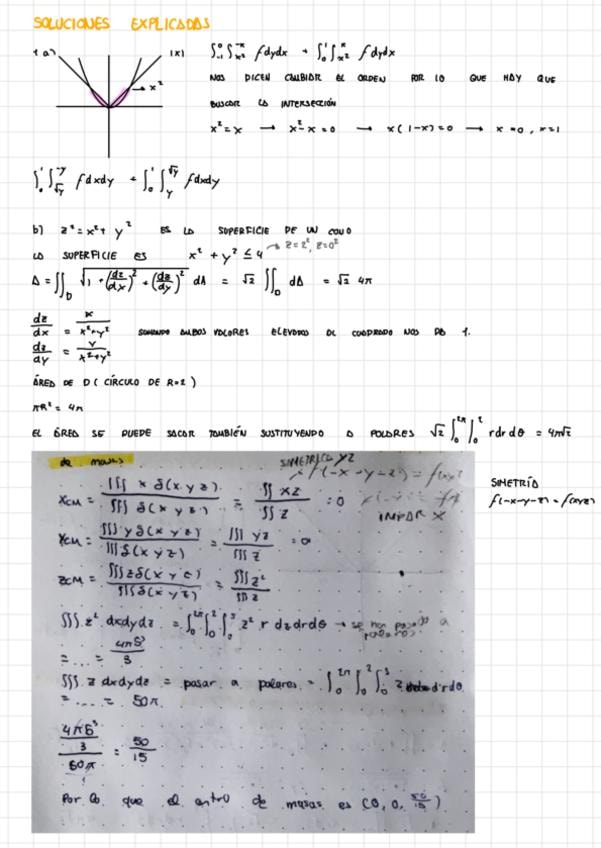 SOLUCIONES EXPLICADAS
1 a) |x| ∫₋₁⁰ ∫ₓ²⁻ˣ f dy dx + ∫₀¹ ∫ₓ²ˣ f dy dx
→ x²
NOS DICEN CAMBIAR EL ORDEN POR LO QUE HAY QUE
BUSCAR LA INTERSECCIÓN
x² = x → x² - x = 0 → x(1-x) = 0 → x = 0, x = 1
f dx dy + f dx dy
b) z² = x² + y² ES LA SUPERFICIE DE UN CONO
LA SUPERFICIE ES x² + y² ≤ 4
A = ∬_D √(1 + (dz/dx)² + (dz/dy)²) dA = √2 ∬_D dA = √2 4π
dz/dx = x/x²+y²
SUMANDO AMBOS VALORES ELEVADOS AL CUADRADO NOS DA 1.
dz/dy = y/x²+y²
ÁREA DE D (CÍRCULO DE R=2)
πR² = 4π
EL ÁREA SE PUEDE SACAR TAMBIÉN SUSTITUYENDO A POLARES √2 ∫₀²π ∫₀² r dr dθ = 4π√2
de masas
SIMETRICA YZ
SIMETRÍA
f(-x-y-z) = f(xyz)
IMPAR X
XCM = ∭ x δ(x y z) / ∭ δ(x y z) = ∬ xz / ∬ z = 0
YCM = ∭ y δ(x y z) / ∭ δ(x y z) = ∭ yz / ∭ z = 0
ZCM = ∭ z δ(x y z) / ∭ δ(x y z) = ∭ z² / ∭ z
∭ z² dx dy dz = ∫₀²π ∫₀² ∫₀⁵ z² r dz dr dθ → se han pasado a polares
= ... = 4π5³/3
∭ z dx dy dz = pasar a polares = ∫₀²π ∫₀² ∫₀⁵
= ... = 50π.
= 50/15
Por lo que el centro de masas es (0, 0, 50/15)